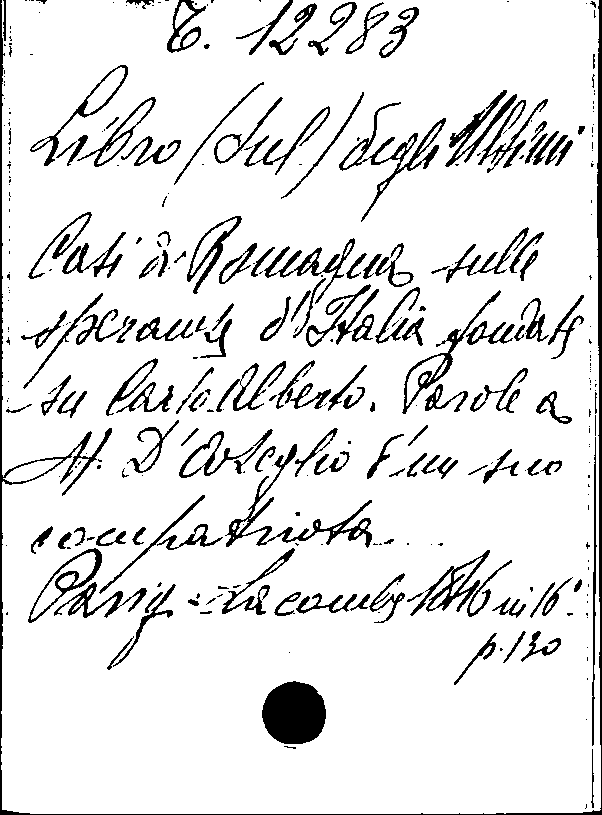 T. 12283
Libro (Sul) degli Ultimi
Casi di Romagna sulle
speranze d'Italia fondate
su Carlo Alberto. Parole a
M. D'Azeglio d'un suo
compatriota
Paris, Lacombe 1846 in 16°.
p. 130